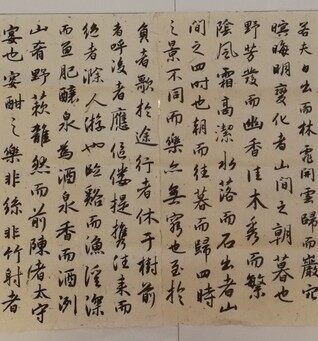 若夫日出而林霏開雲歸而巖穴
暝晦明變化者山間之朝暮也
野芳發而幽香佳木秀而繁
陰風霜高潔水落而石出者山
間之四時也朝而往暮而歸四時
之景不同而樂亦無窮也至於
負者歌於途行者休于樹前
者呼後者應傴僂提攜往来而
絶者滁人游也臨谿而漁谿深
而魚肥釀泉為酒泉香而酒洌
山肴野蔌雜然而前陳者太守
宴也宴酣之樂非絲非竹射者